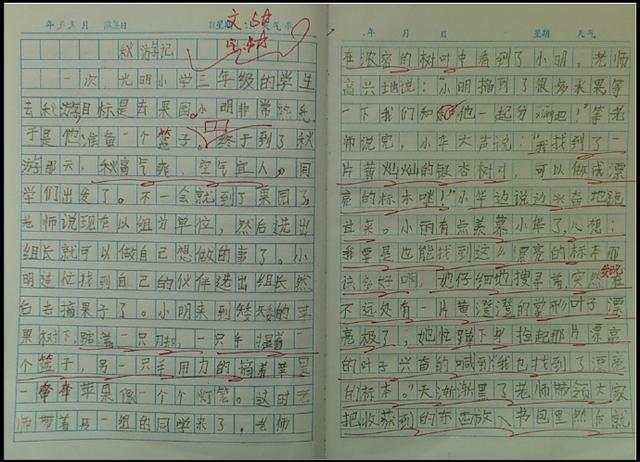 年 月 日 星期 天气
秋游记
一次,光明小学三年级的学生
去秋游目标是去果园。小明非常
于是他准备一个篮子。终于到了秋
游那天,秋高气爽,空气宜人,同
学们出发了。不一会就到了果园了,
老师说现在以组为单位,然后选出
组长就可以做自己想做的事了。小
明连忙找到自己的伙伴选出组长然
后去摘果子了。小明来到矮矮的苹
果树下,踮着一只脚,一只手
个篮子,另一只手用力的摘着苹果
一
苹果像一个个灯笼。这时老
师带着另一组的同学来了。老师
年 月 日 星期 天气
在浓密的树叶中看到了小明,老师
高兴地说:“小明摘到了很多水果等
一下我们和他一起分吧!”等老
师说完,小华大声说:“我找到了一
片黄灿灿的银杏树叶,可以做成漂
亮的标本喽!”小华边说边兴奋地跑
过来。小丽有点羡慕小华了,心想:
我要是也能找到这么漂亮的标本
该多好啊,她仔细地搜寻着,突然发现
不远处有一片黄澄澄的掌形叶子漂
亮极了,她忙蹲下身捡起那片漂亮
的叶子兴奋的喊到“我也找到了漂亮
的标本。”天渐渐黑了老师带领大家
把收获到的东西放入书包里然后就